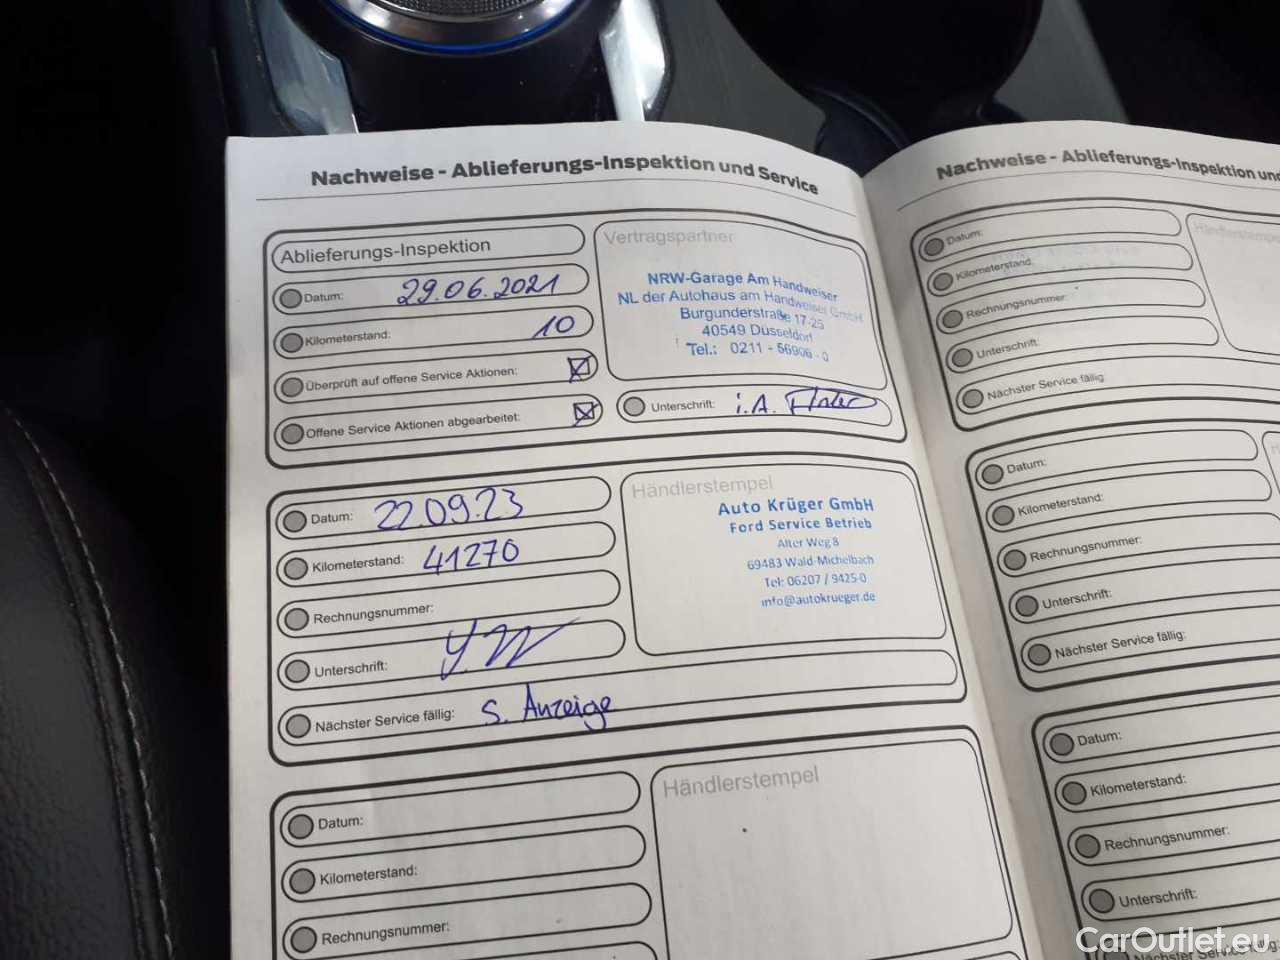 Nachweise - Ablieferungs-Inspektion und Service
Ablieferungs-Inspektion
Datum: 29.06.2021
Kilometerstand: 10
Überprüft auf offene Service Aktionen:
Offene Service Aktionen abgearbeitet:
Vertragspartner
NRW-Garage Am Handweiser
NL der Autohaus am Handweiser GmbH
Burgunderstraße 17-25
40549 Düsseldorf
Tel.: 0211 - 56906 - 0
Unterschrift: i.A.
Datum: 22.09.23
Kilometerstand: 41270
Rechnungsnummer:
Unterschrift:
Nächster Service fällig: s. Anzeige
Händlerstempel
Auto Krüger GmbH
Ford Service Betrieb
Alter Weg 8
69483 Wald-Michelbach
Tel: 06207 / 9425-0
info@autokrueger.de
Datum:
Kilometerstand:
Rechnungsnummer:
Händlerstempel
Nachweise - Ablieferungs-Inspektion und
Datum:
Kilometerstand:
Rechnungsnummer:
Unterschrift:
Nächster Service fällig
Händlerstempe
Datum:
Kilometerstand:
Rechnungsnummer:
Unterschrift:
Nächster Service fällig:
Datum:
Kilometerstand:
Rechnungsnummer:
Unterschrift:
Nächster Service fällig:
CarOutlet.eu